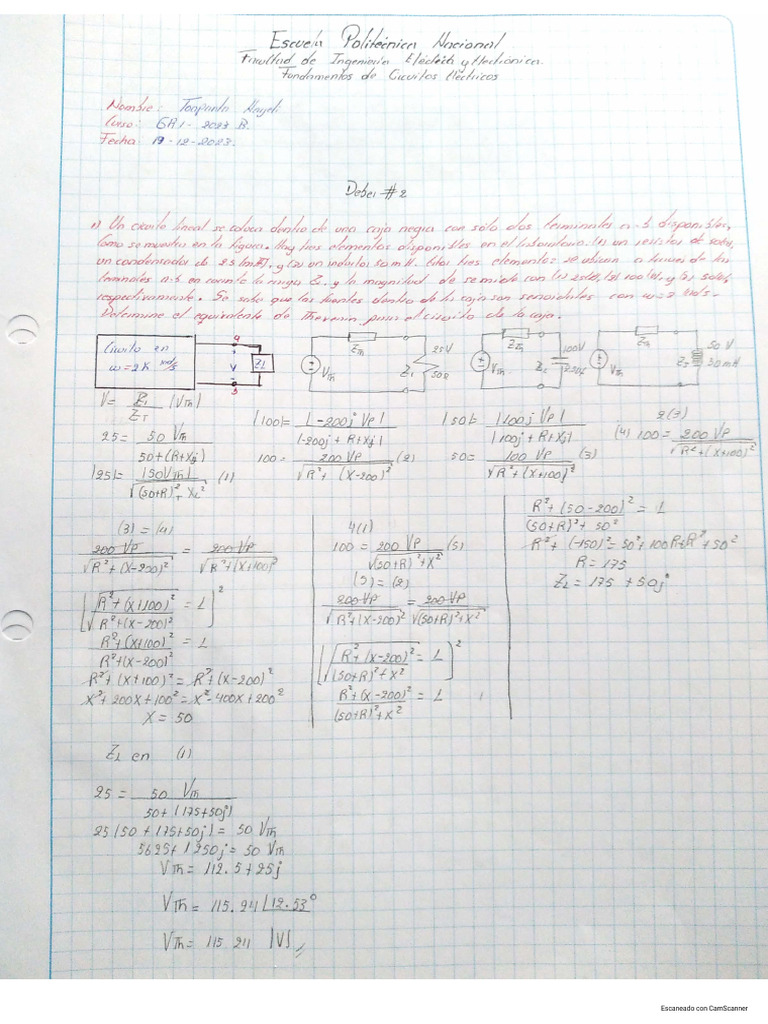 Escuela Politécnica Nacional
Facultad de Ingeniería Eléctrica y Electrónica.
Fundamentos de Circuitos Eléctricos
Nombre:
Curso: GR1 - 2023 B.
Fecha: 19-12-2023.
Deber #2
1) Un circuito lineal se coloca dentro de una caja negra con sólo dos terminales a-b disponibles,
como se muestra en la figura. Hay tres elementos disponibles en el laboratorio: (1) un resistor de 50Ω,
un condensador de 2.5 [mF], y (3) un inductor 50 mH. Estos tres elementos se
terminales a-b la carga ZL y la magnitud de se midió con (1) 25[V], (2) 100 [V], y (3) 50[V],
respectivamente. Se sabe que las fuentes dentro de la caja son senoidales con w=2 rad/s.
Determine el equivalente de Thevenin para el circuito de la caja.
Circuito en
w=2K rad/s
a
V
b
ZL
ZTh
VTh
ZL
25V
50Ω
VTh
ZC
100V
VTh
50 V
50mH
V= ZL/ZT (VTh)
25= 50 VTh / 50+(R+Xj)
|25|= |50VTh| / √(50+R)²+XL² (1)
|100|= |-200j Vp| / |-200j+R+Xj|
100= 200 VP / √R²+(X-200)² (2)
|50|= |100j VP| / |100j+R+Xj|
50= 100 VP / √R²+(X+100)² (3)
2(3)
(4) 100= 200 VP / √R²+(X+100)²
(3) = (4)
200 VP / √R²+(X-200)² = 200 VP / √R²+(X+100)²
[√R²+(X+100)² / √R²+(X-200)² = 1]²
R²+(X+100)² / R²+(X-200)² = 1
R²+(X+100)²= R²+(X-200)²
X²+200X+100²= X²-400X+200²
X=50
4(1)
100= 200 VP / √(50+R)²+X² (5)
(5) = (2)
200VP / √R²+(X-200)² = 200VP / √(50+R)²+X²
[√R²+(X-200)² / (50+R)²+X² = 1]²
R²+(X-200)² / (50+R)²+X² = 1
R²+(50-200)² / (50+R)²+50² = 1
R²+(-150)²= 50²+100R+R²+50²
R=175
ZL=175+50j
ZL en (1)
25= 50 VTh / 50+(175+50j)
25(50+175+50j)= 50 VTh
5625+1250j= 50 VTh
VTh= 112.5+25j
VTh= 115.24 ∠12.53°
VTh= 115.24 [V]
Escaneado con CamScanner